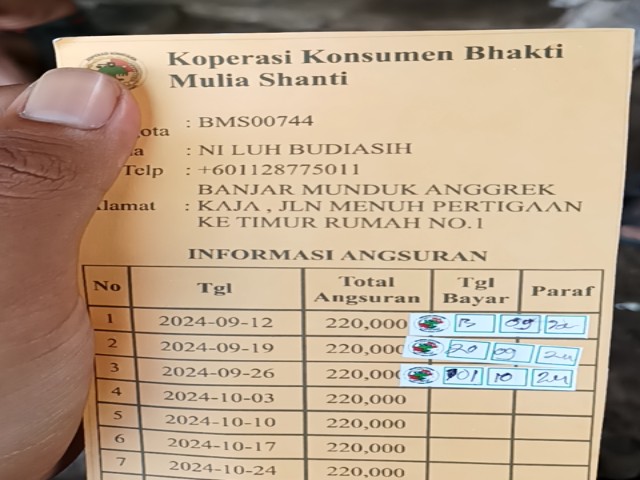 Koperasi Konsumen Bhakti
Mulia Shanti
ota : BMS00744
a : NI LUH BUDIASIH
Telp : +601128775011
BANJAR MUNDUK ANGGREK
lamat : KAJA , JLN MENUH PERTIGAAN
KE TIMUR RUMAH NO.1
INFORMASI ANGSURAN
No Tgl Total Angsuran Tgl Bayar Paraf
1 2024-09-12 220,000 13 09 24
2 2024-09-19 220,000 20 09 24
3 2024-09-26 220,000 01 10 24
4 2024-10-03 220,000
5 2024-10-10 220,000
6 2024-10-17 220,000
7 2024-10-24 220,000